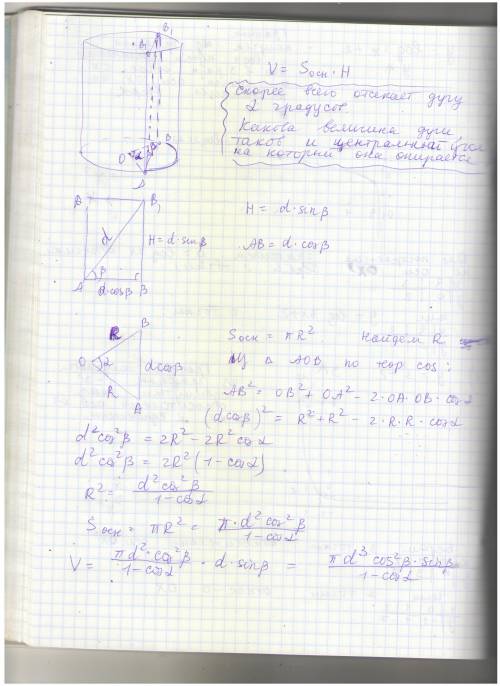 B₁
V = Sосн · H
Скорее всего отсекает дугу
α градусов
Какова величина дуги,
таков и центральный угол
на который она опирается
O α B
A
A₁ B₁
H = d·sinβ
d
H = d·sinβ
AB = d·cosβ
β
A d cosβ B
B
R
Sосн = πR² Найдём R
O α d cosβ
Из Δ AOB, по теор cos:
R
A
AB² = OB² + OA² - 2·OA·OB·cosα
(d cosβ)² = R² + R² - 2·R·R·cosα
d²cos²β = 2R² - 2R²cosα
d²cos²β = 2R²(1-cosα)
R² = d²cos²β / 1-cosα
Sосн = πR² = π·d²cos²β / 1-cosα
V = πd²·cos²β / 1-cosα · d·sinβ = πd³cos²β·sinβ / 1-cosα